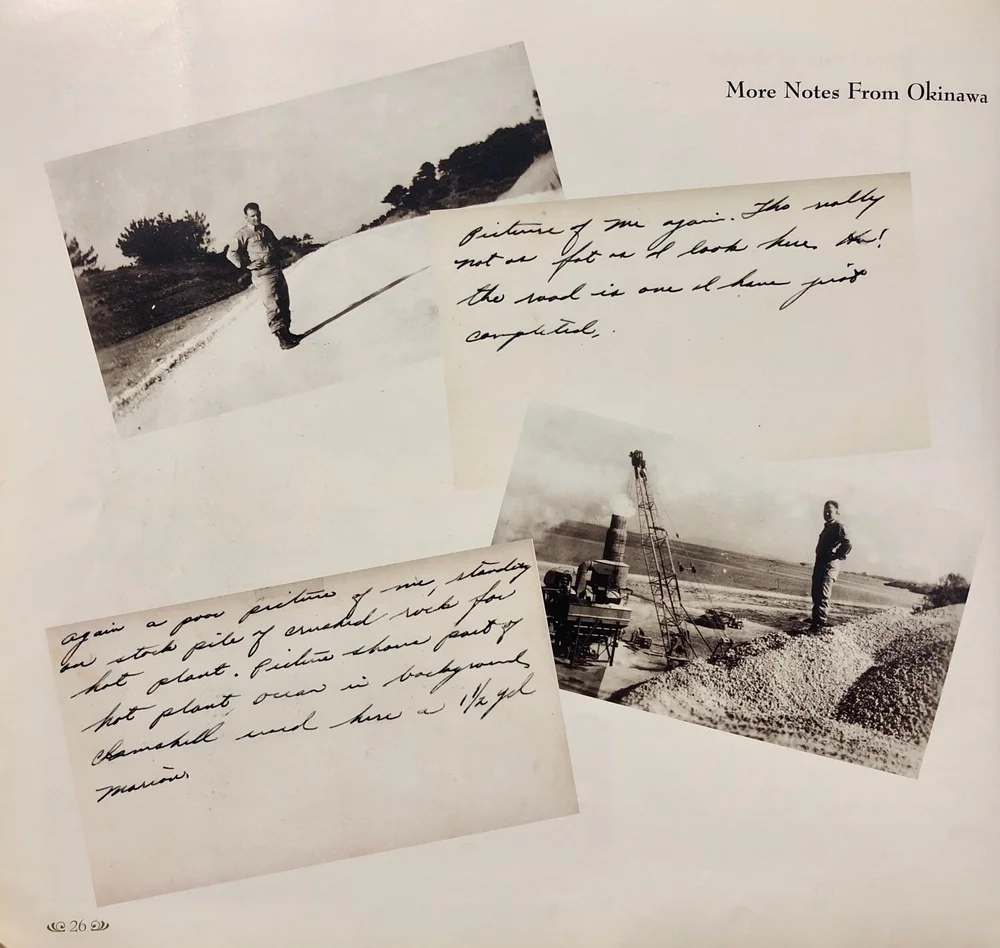 More Notes From Okinawa
Picture of me again. Tho really
not as fat as I look here
the road is one I have just
completed.
again a poor picture of me, standing
on stock pile of crushed rock for
hot plant. Picture shows part of
hot plant ocean in background
Clamshell used here a 1½ yd
Marion.
26